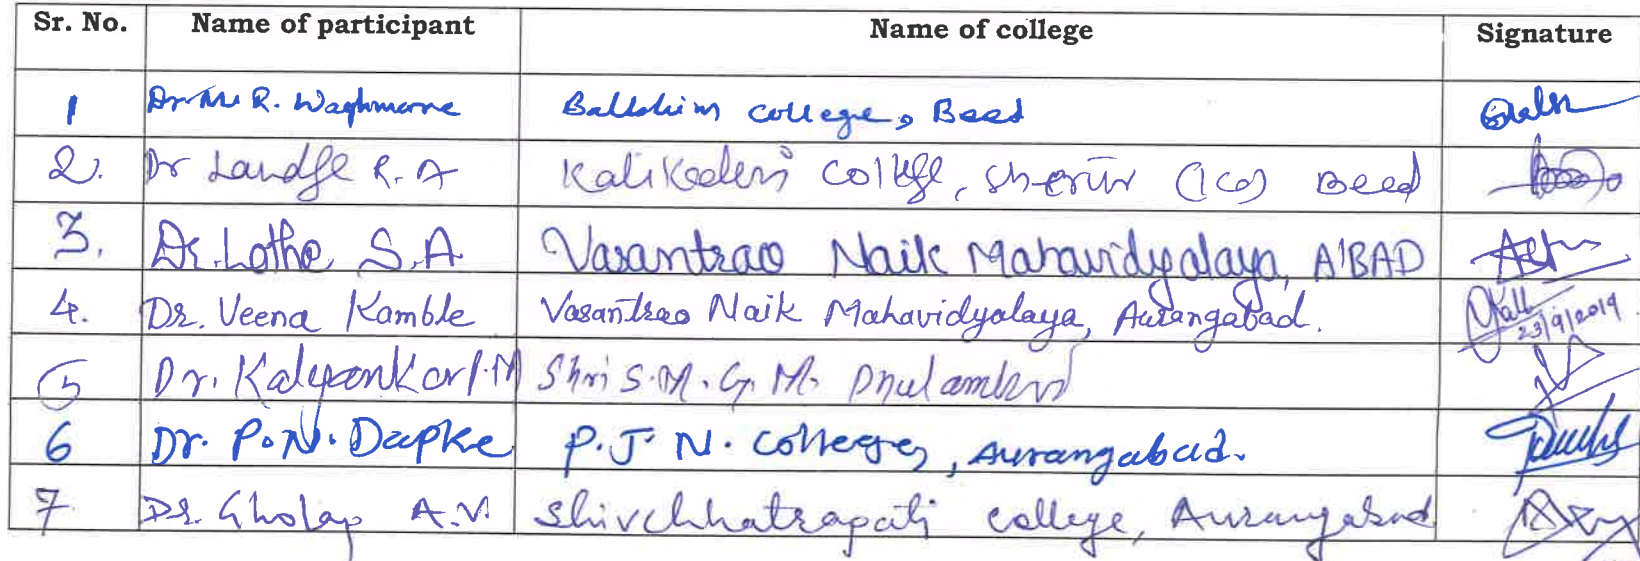 Sr. No. Name of participant Name of college Signature
1 Dr. M. R. Waghmare Ballbhim College, Beed
2. Dr Landge R. A Kalikadevi College, Shirur (Ka) Beed
3. Dr. Lothe S.A. Vasantrao Naik Mahavidyalaya, A'BAD
4. Dr. Veena Kamble Vasantrao Naik Mahavidyalaya, Aurangabad. 23/9/2019
5 Dr. Kalyankar Shri S.M. G. M. Phulambri
6 Dr. P.N. Dapke P.J N. College, Aurangabad.
7 Dr. Gholap A.V. Shivchhatrapati college, Aurangabad